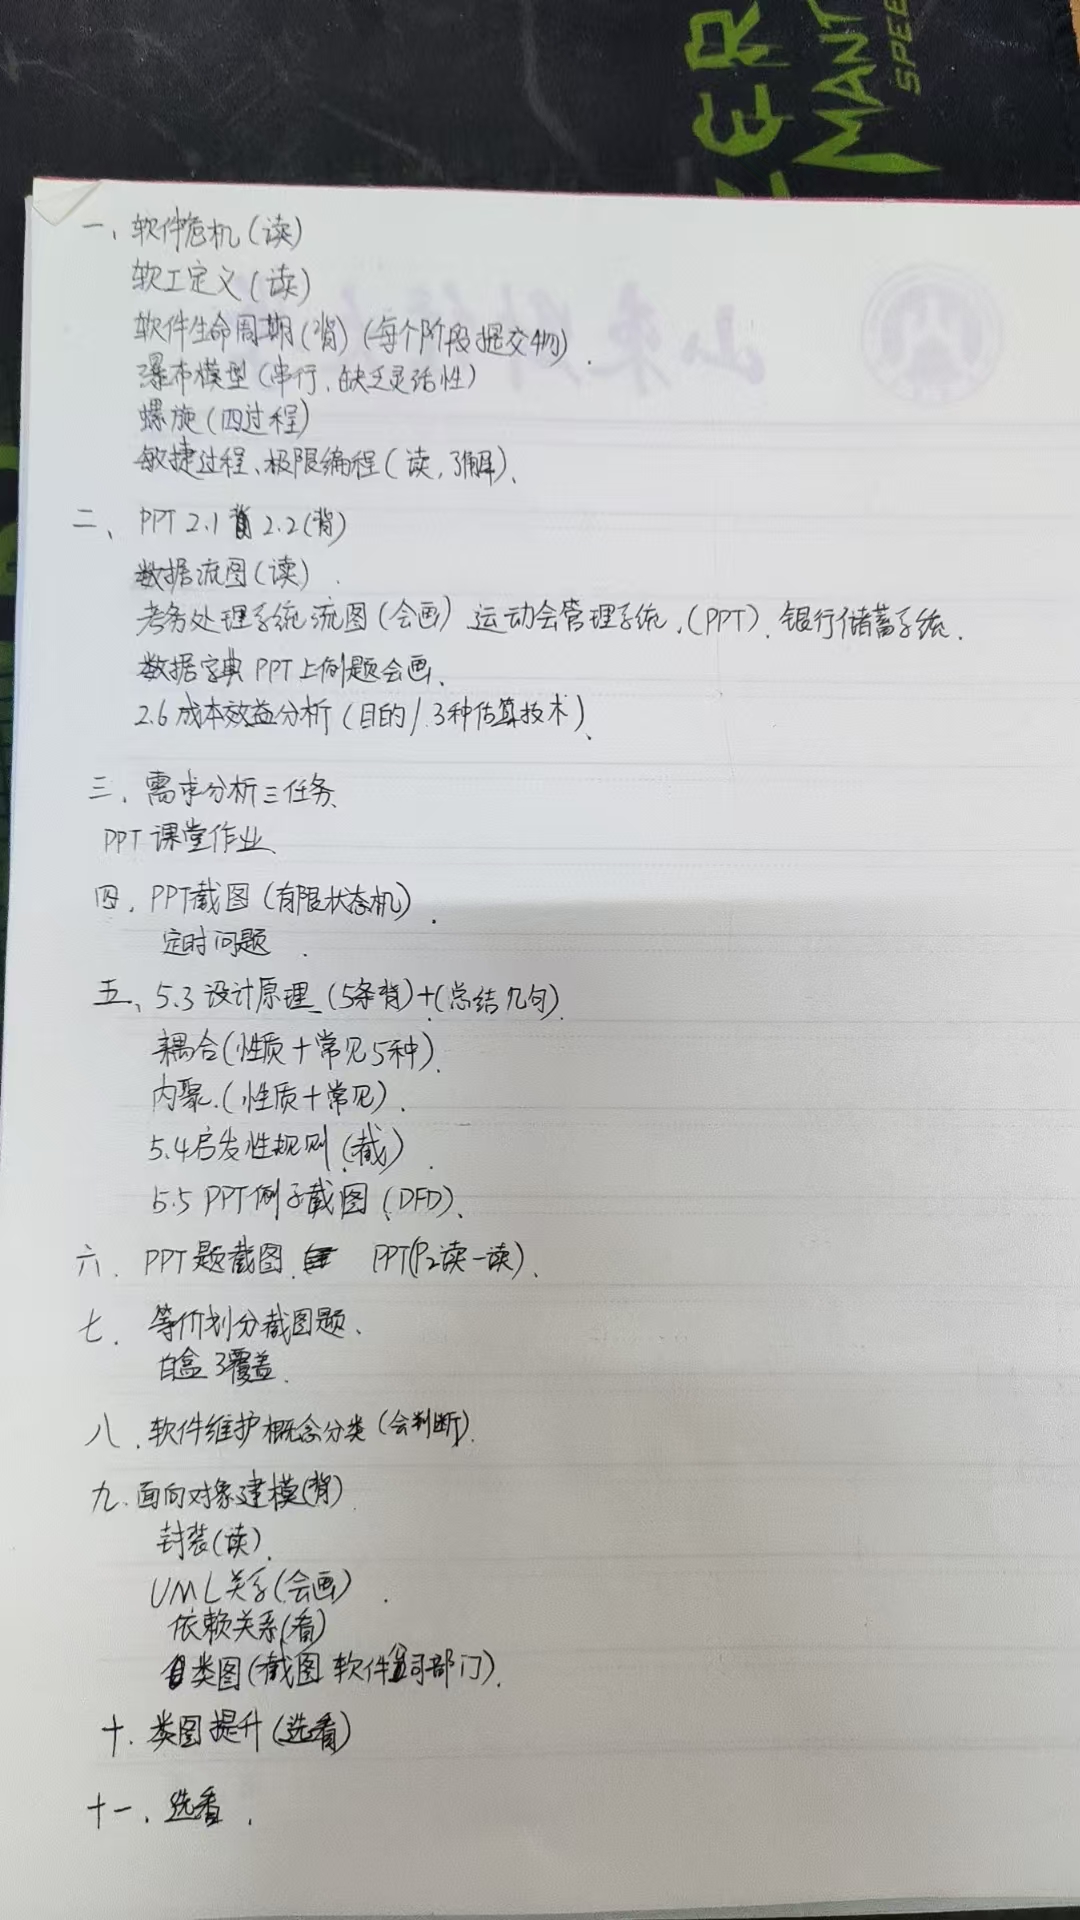 ER
MANT
SPEE
山东财经大
一、软件危机(读)
软工定义(读)
软件生命周期(背)(每个阶段提交物).
瀑布模型(串行、缺乏灵活性)
螺旋(四过程)
敏捷过程、极限编程(读,了解)、
二、PPT 2.1 2.2(背)
数据流图(读).
考务处理系统流图(会画) 运动会管理系统.(PPT)、银行储蓄系统.
数据字典 PPT上例题会画、
2.6成本效益分析(目的/.3种估算技术)、
三.需求分析三任务、
PPT课堂作业、
四.PPT截图(有限状态机).
定时问题.
五、5.3设计原理(5条背)+(总结几句).
耦合(性质+常见5种).
内聚.(性质+常见).
5.4启发性规则(截).
5.5 PPT例子截图(DFD)、
六.PPT题截图. PPT(P2读一读).
七.等价划分截图题、
白盒 3覆盖.
八.软件维护概念分类(会判断).
九.面向对象建模(背)
封装(读).
UML关系(会画).
依赖关系(看)
类图(截图 软件公司部门).
十.类图提升(选看)
十一.选看.